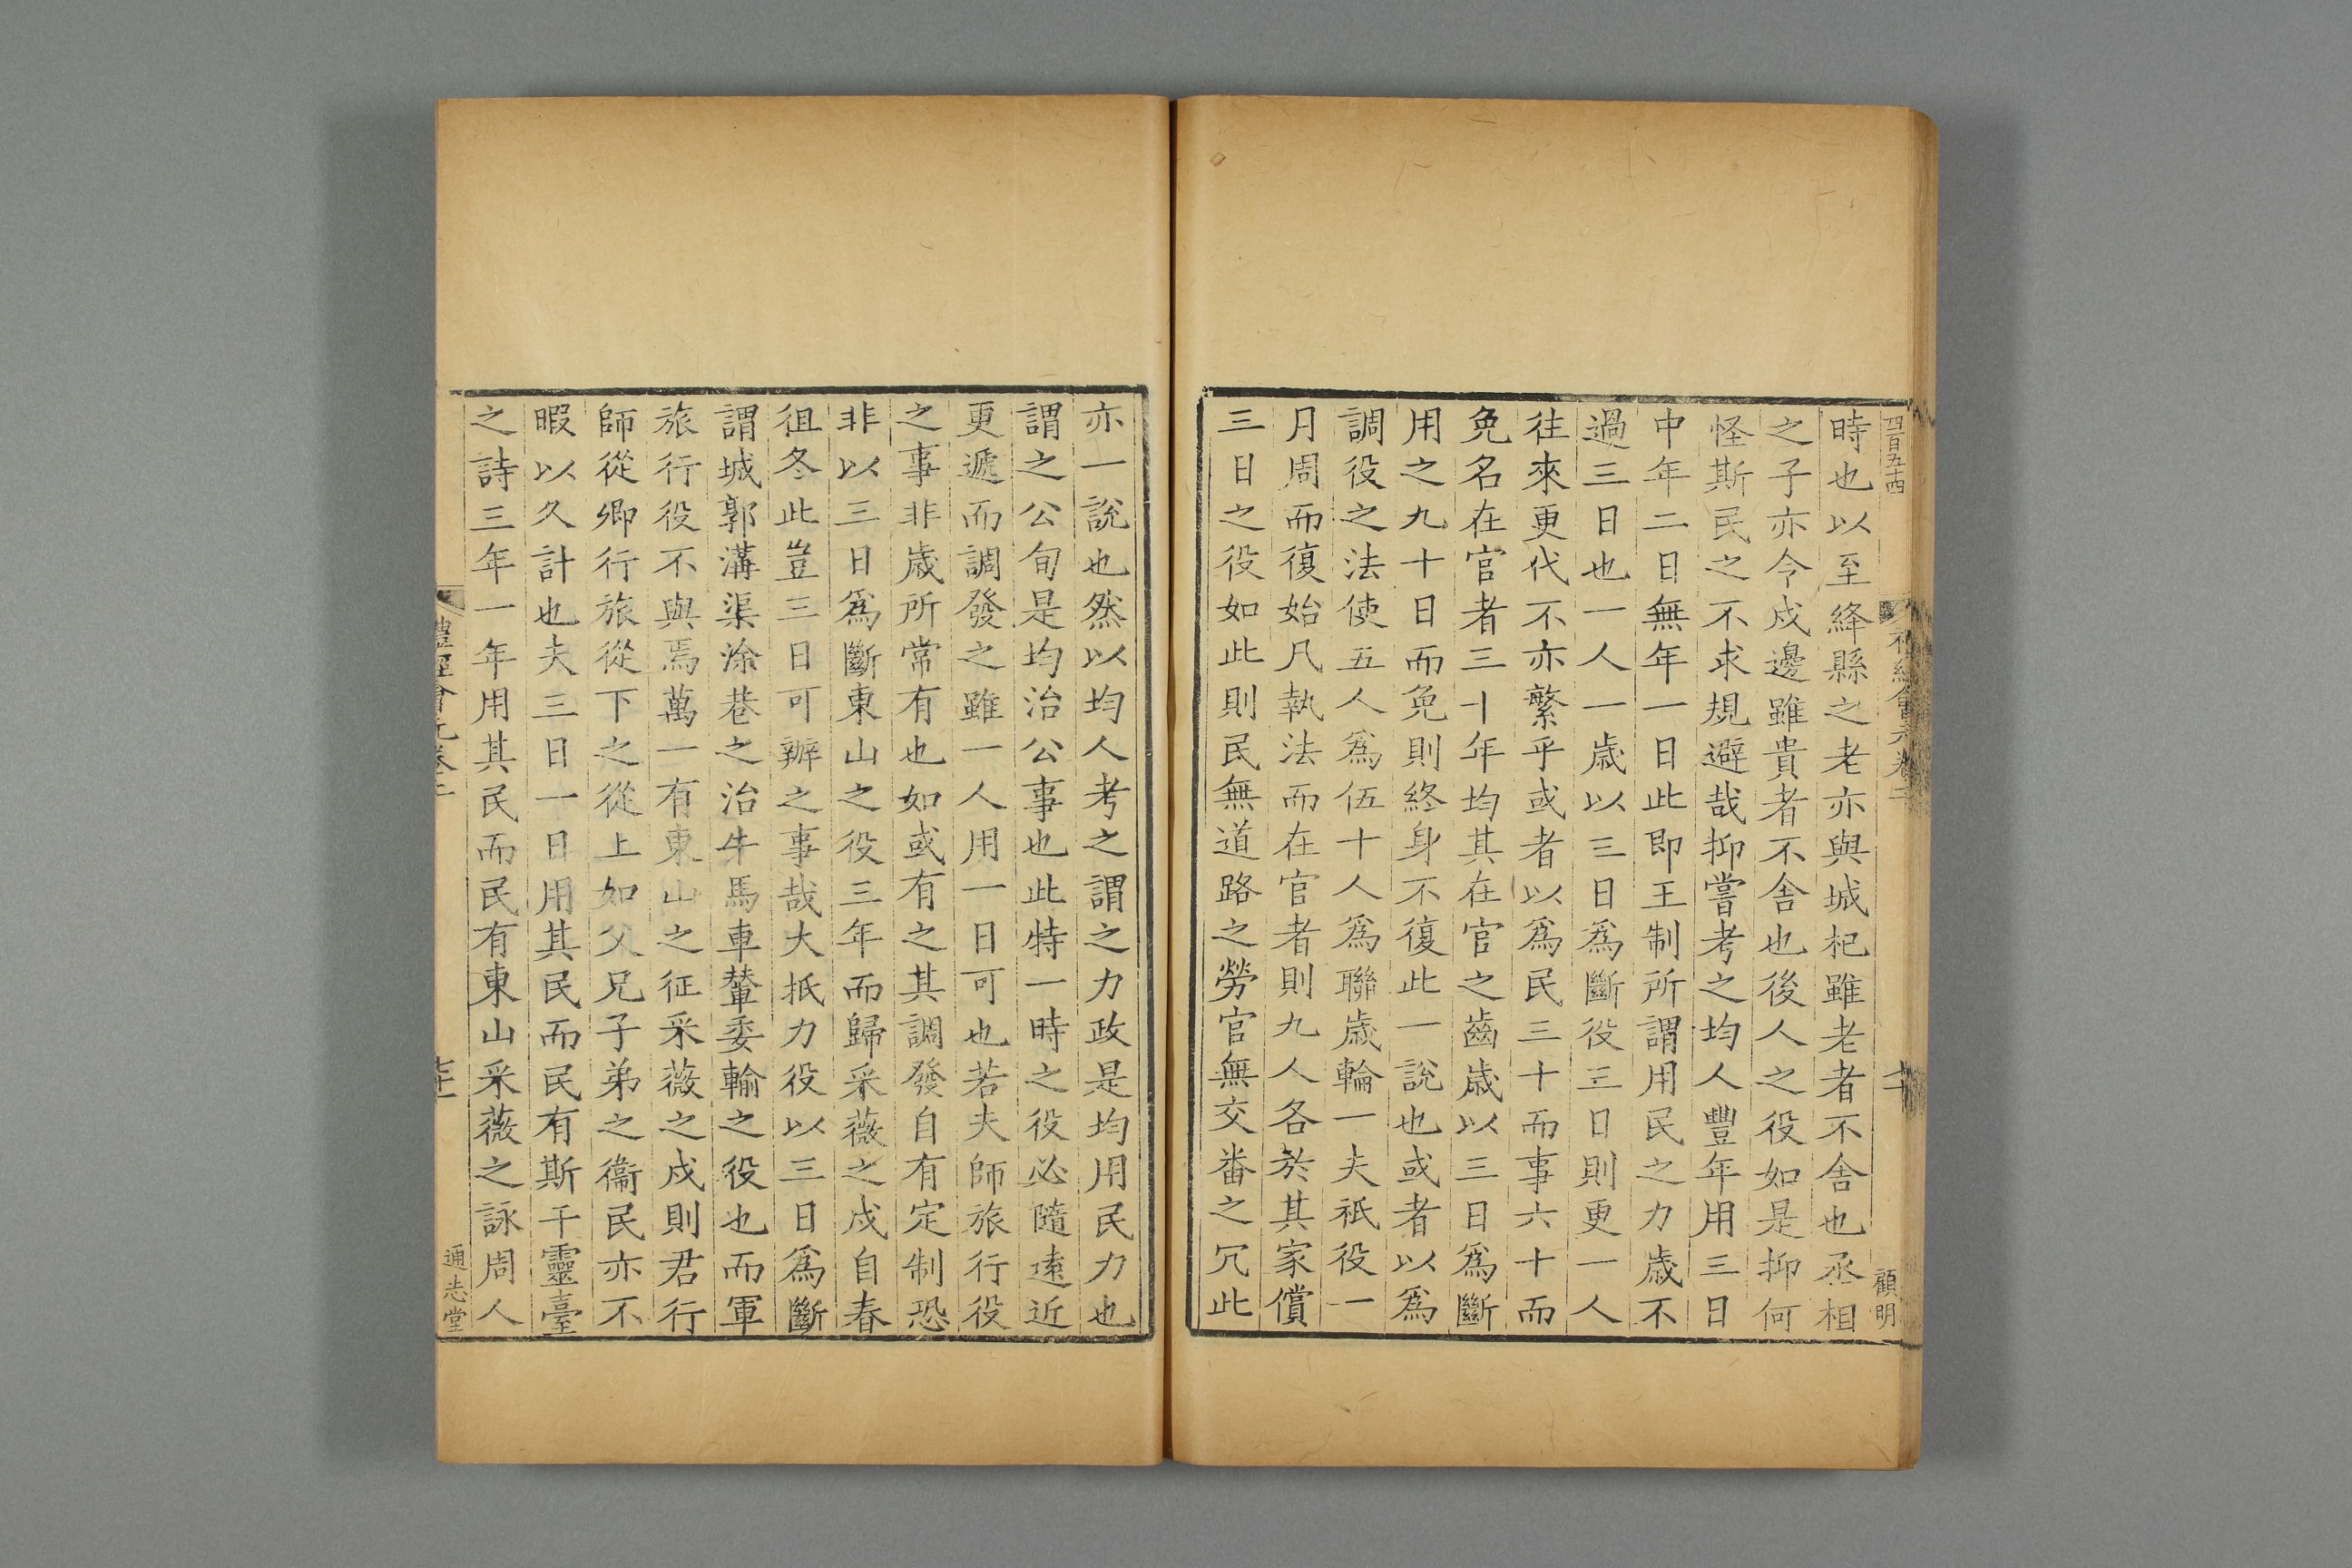 四百五十四
顧明
時也以至絳縣之老亦與城杞雖老者不舍也丞相
之子亦令戍邊雖貴者不舍也後人之役如是抑何
怪斯民之不求規避哉抑嘗考之均人豐年用三日
中年二日無年一日此即王制所謂用民之力歲不
過三日也一人一歲以三日爲斷役三日則更一人
往來更代不亦繁乎或者以爲民三十而事六十而
免名在官者三十年均其在官之齒歲以三日爲斷
用之九十日而免則終身不復此一說也或者以爲
調役之法使五人爲伍十人爲聯歲輪一夫祇役一
月周而復始凡執法而在官者則九人各於其家償
三日之役如此則民無道路之勞官無交番之冗此
亦一說也然以均人考之謂之力政是均用民力也
謂之公旬是均治公事也此特一時之役必隨遠近
更遞而調發之雖一人用一日可也若夫師旅行役
之事非歲所常有也如或有之其調發自有定制恐
非以三日爲斷東山之役三年而歸采薇之戍自春
徂冬此豈三日可辦之事哉大抵力役以三日爲斷
謂城郭溝渠涂巷之治牛馬車輦委輸之役也而軍
旅行役不與焉萬一有東山之征采薇之戍則君行
師從卿行旅從下之從上如父兄子弟之衞民亦不
暇以久計也夫三日一日用其民而民有斯干靈臺
之詩三年一年用其民而民有東山采薇之詠周人
禮經會元卷二
通志堂